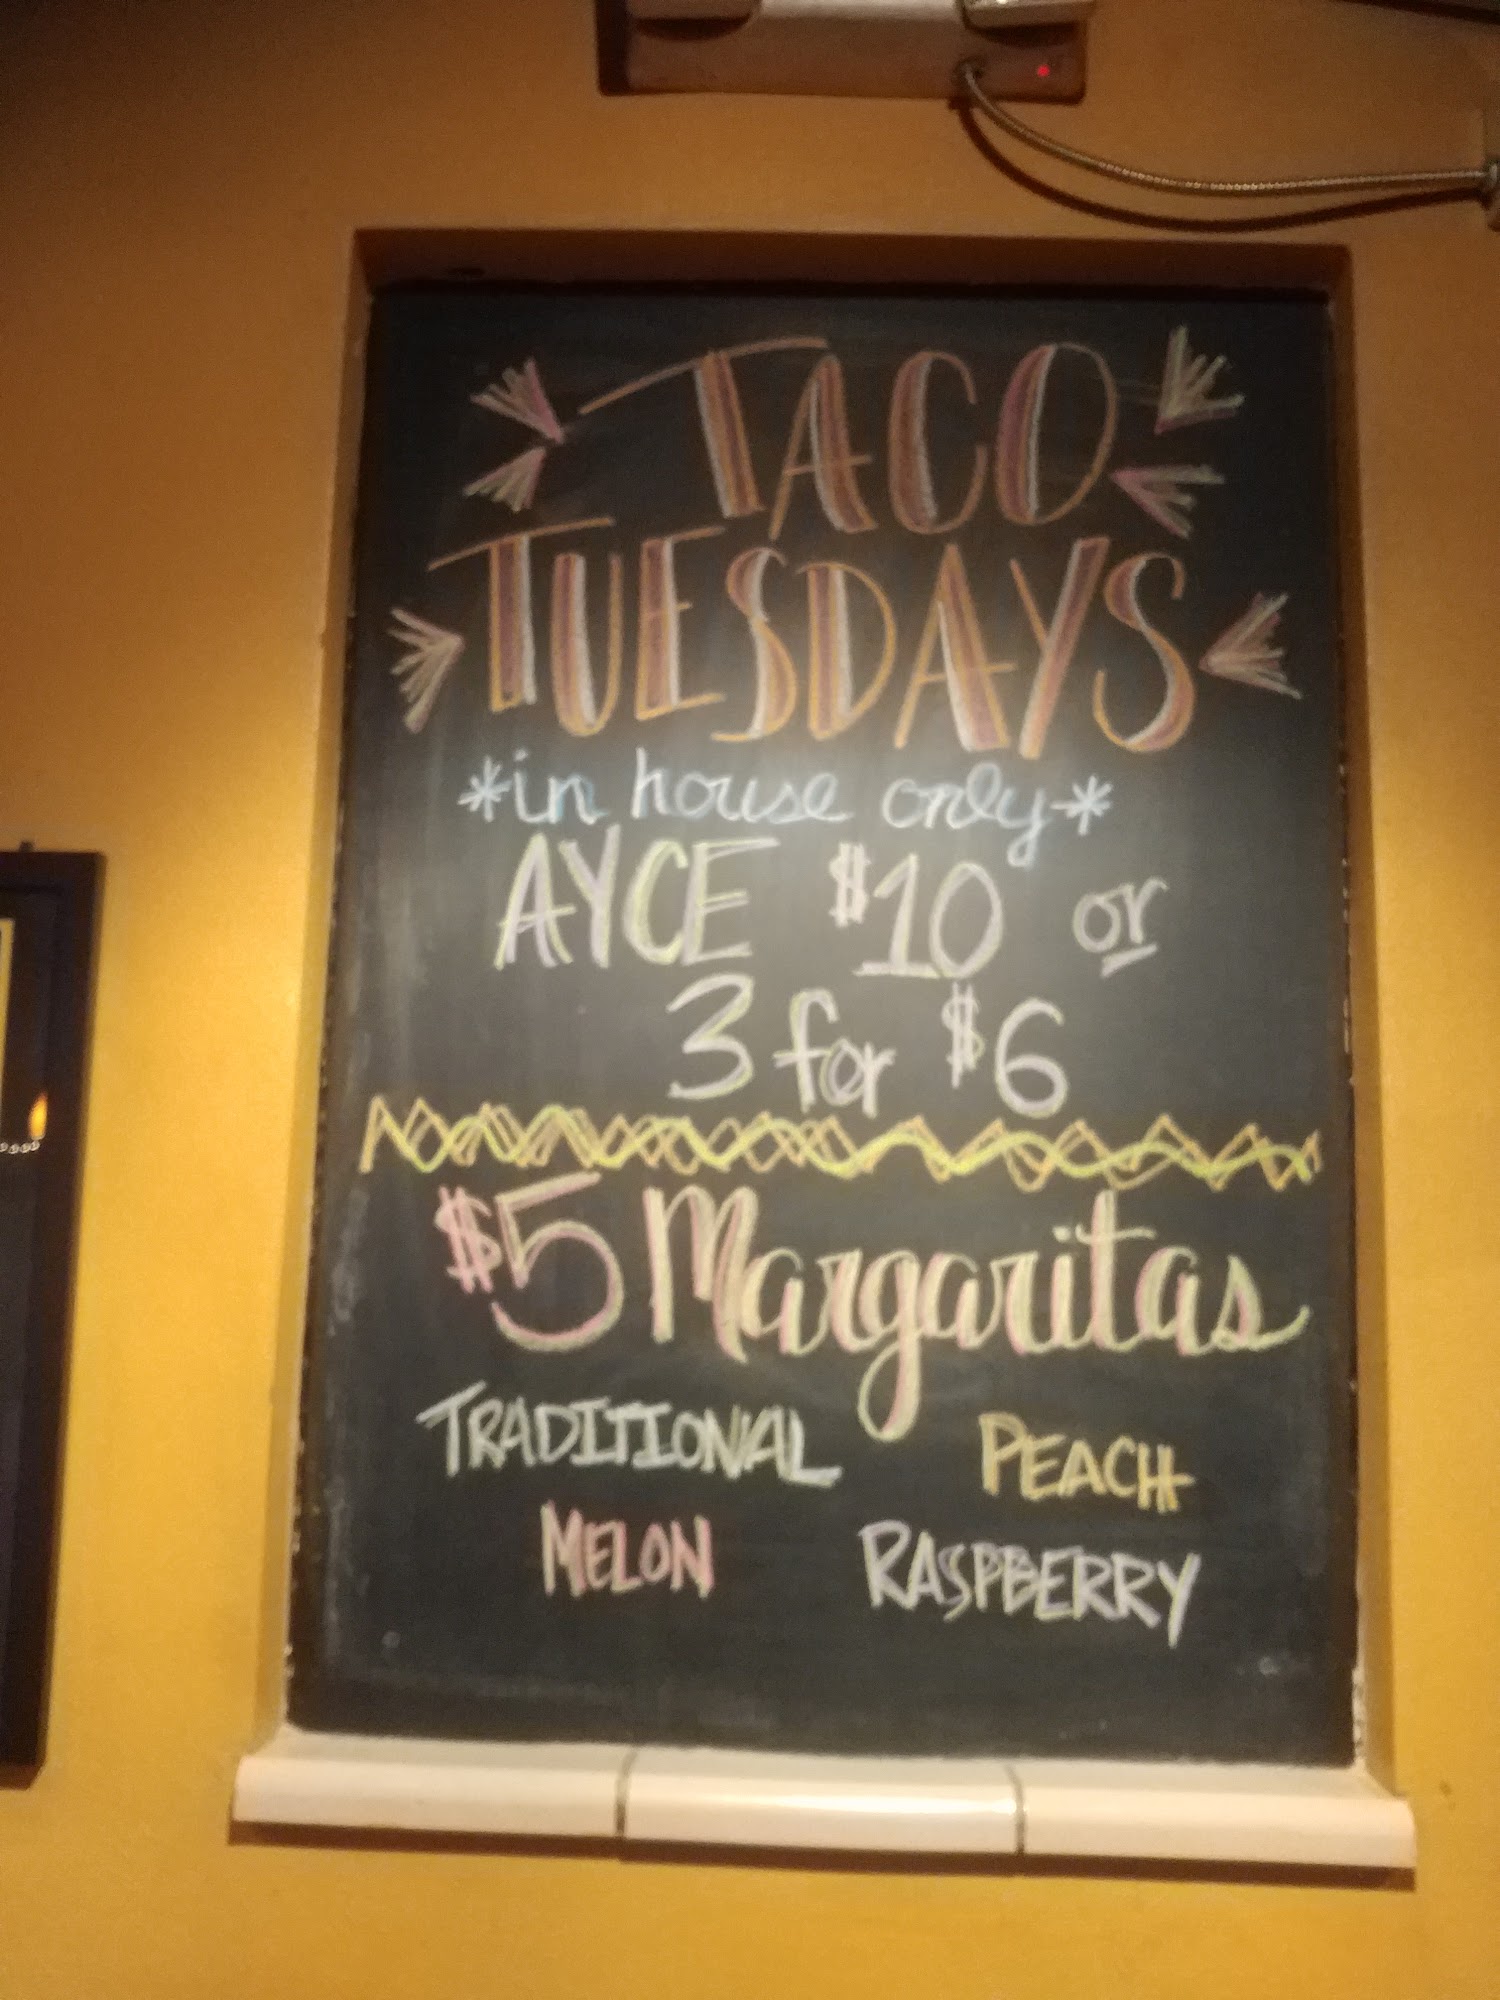 TACO
TUESDAYS
*in house only*
AYCE $10 or
3 for $6
$5 Margaritas
TRADITIONAL PEACH
MELON RASPBERRY